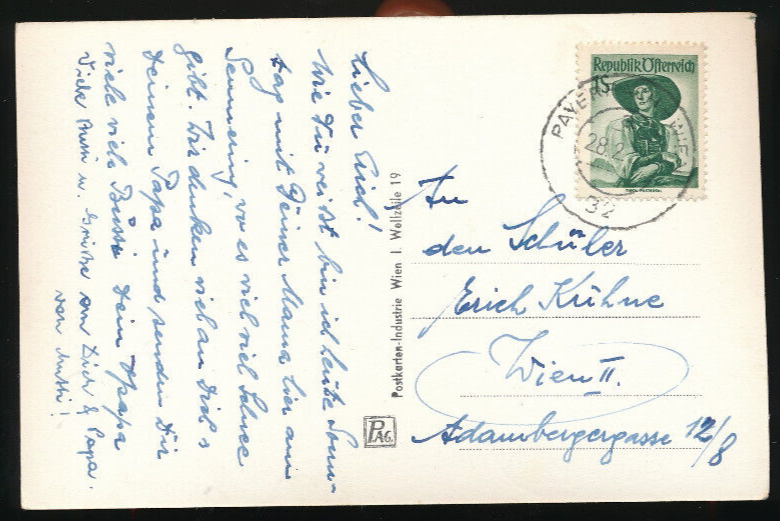 Lieber Erich!
Wie Du weisst bin ich heute Sonn-
tag mit Deiner Mama hier am
Semmering, wo es viel viel Schnee
gibt. Wir denken viel an Dich u
Deinem Papa und senden Dir
viele viele Bussi Dein Opapa
Viele Bussi u. Grüße an Dich & Papa.
von Mutti!
Postkarten-Industrie Wien I. Wollzeile 19
PAG.
Republik Österreich
PAYERB
28.2
32
An
den Schüler
Erich Kühne
Wien II.
Adambergergasse 12/8